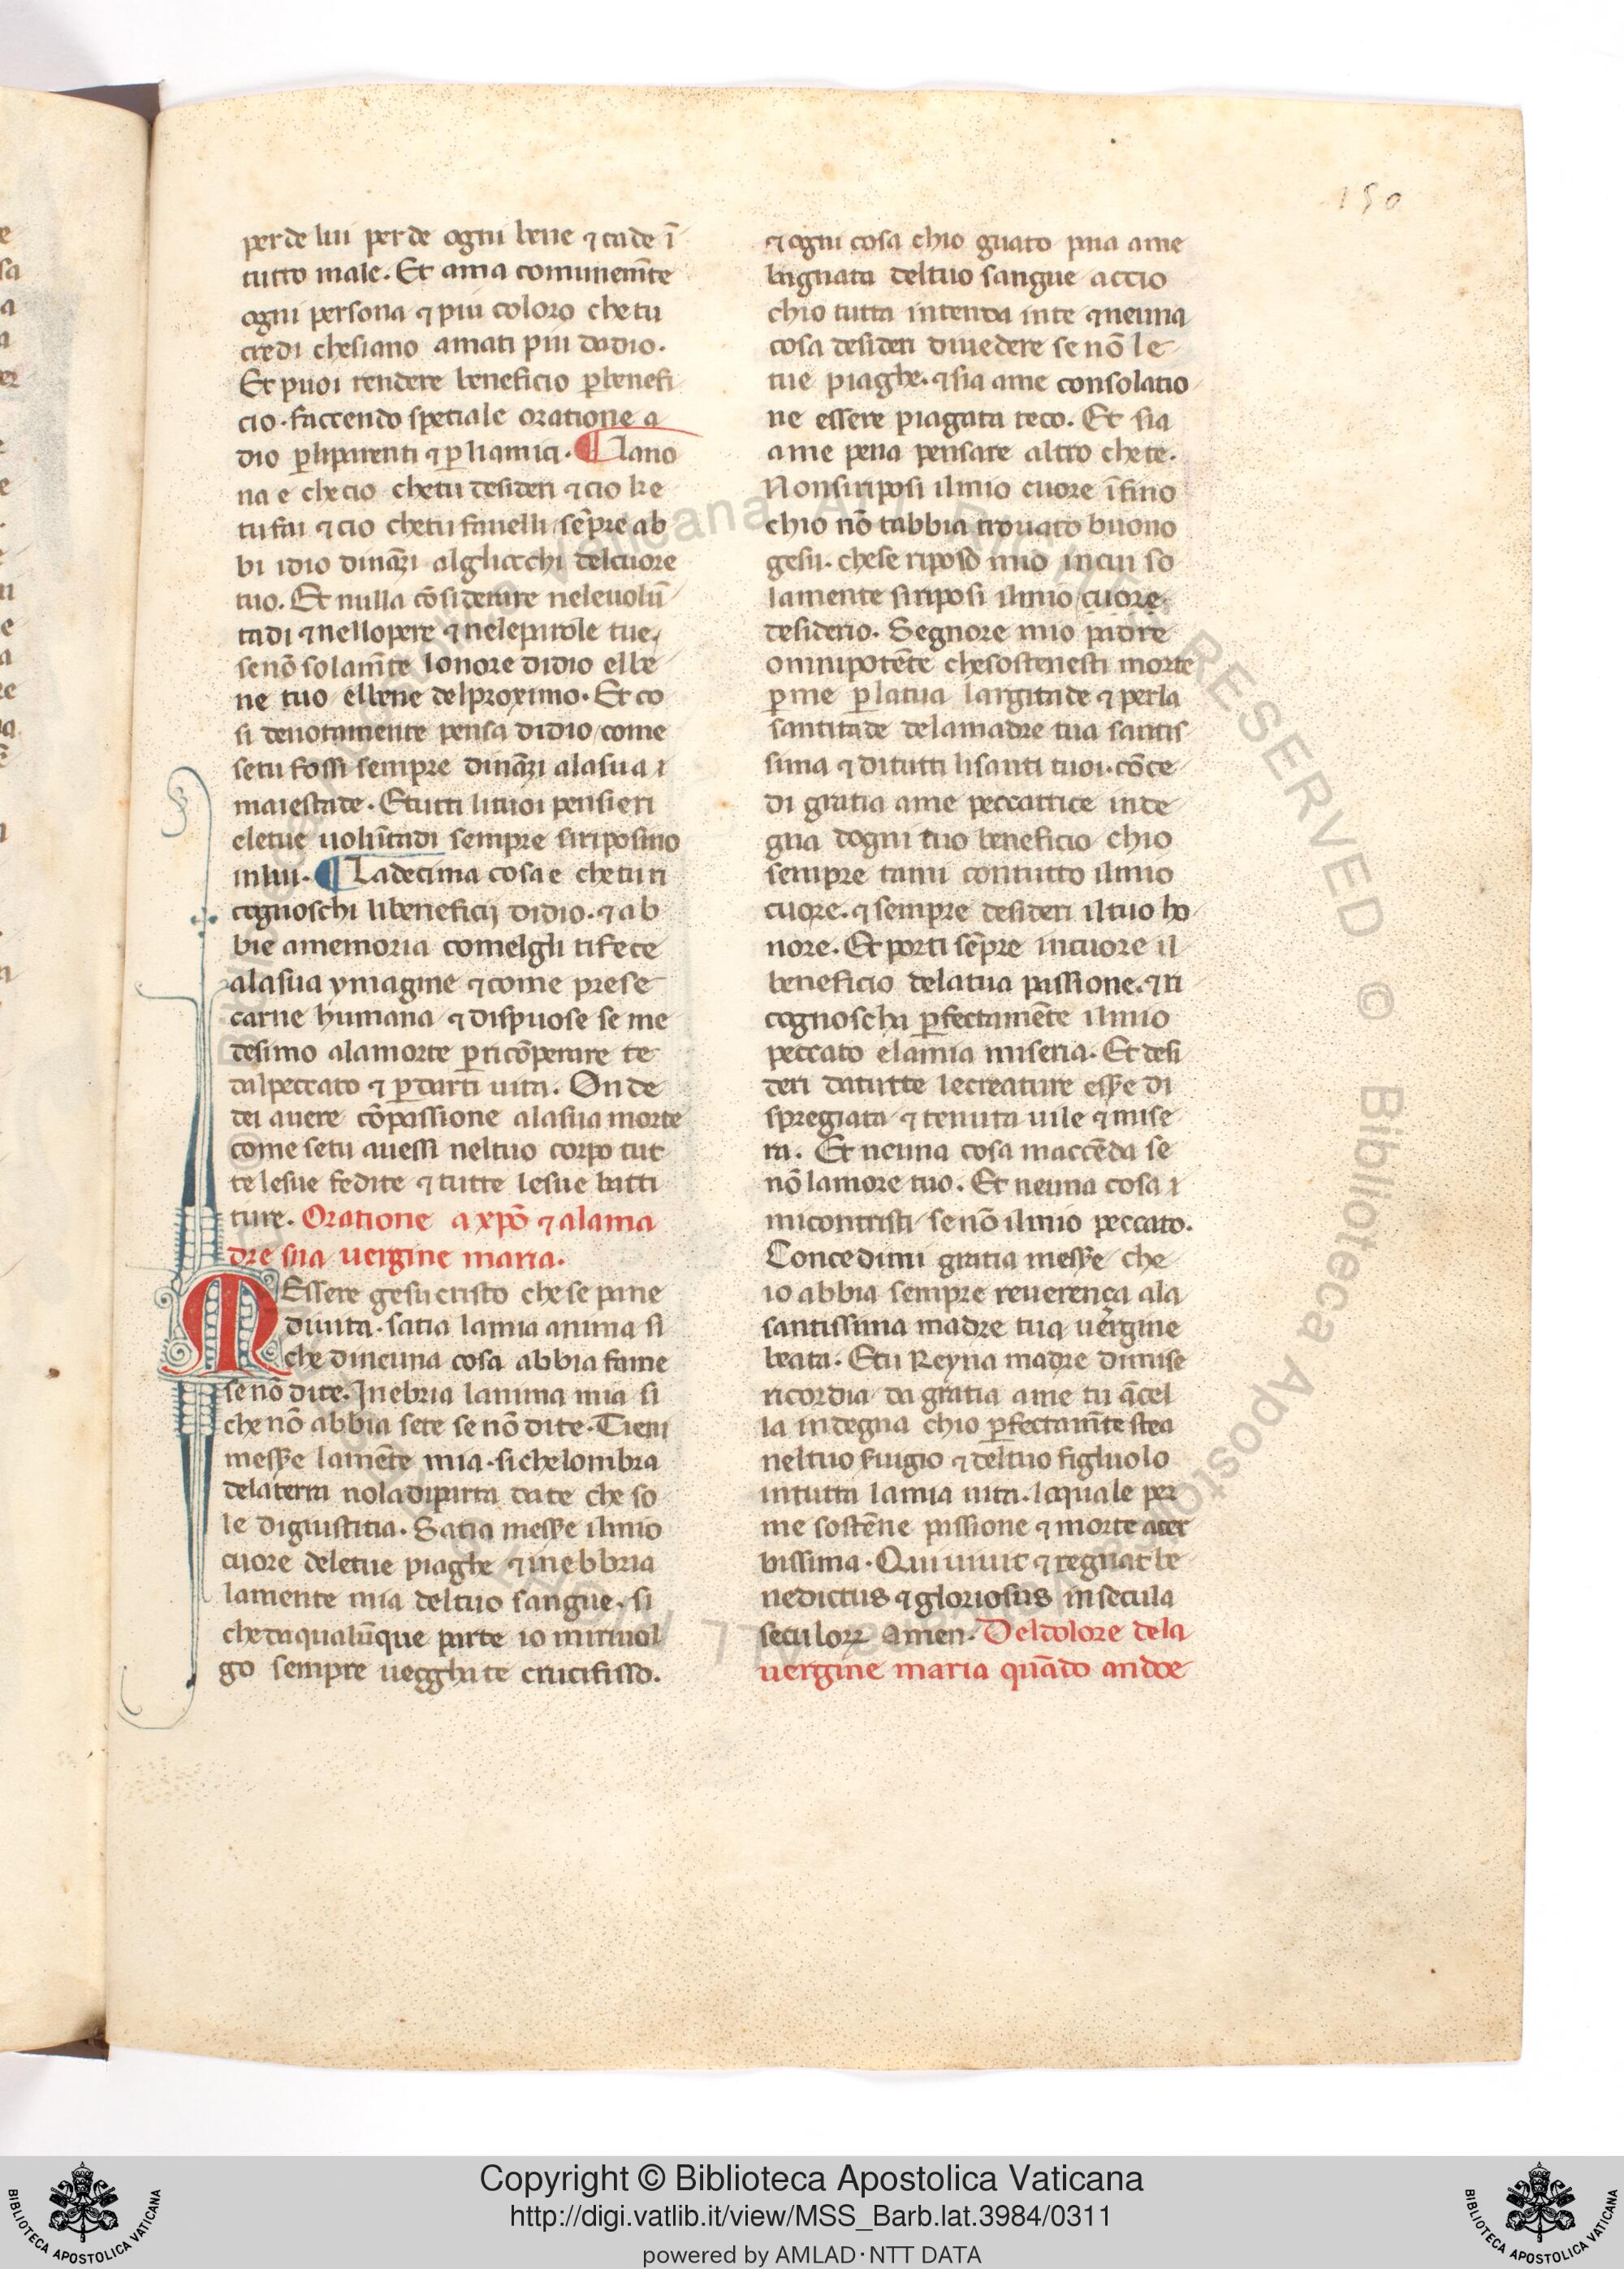 150
perde lui perde ogni bene ⁊ cade ī
tutto male. Et ama comunem̄te
ogni persona ⁊ piu coloro chetu
credi chesiano amati piu dadio.
Et puoi rendere beneficio ꝑbenefi
cio. faccendo spetiale oratione a
dio ꝑliparenti ⁊ ꝑ liamici. ¶ Lano
na e checio chetu desideri ⁊ cio ke
tu fai ⁊ cio chetu fauelli sēpre ab
bi idio dināzi algliocchi delcuore
tuo. Et nulla cōsiderare neleuolū
tadi ⁊ nellopere ⁊ neleparole tue,
senō solam̄te lonore didio elbe
ne tuo elbene delproximo. Et co
si deuotamente pensa didio come
setu fossi sempre dināzi alasua
maiestade. Etutti lituoi pensieri
eletue uolūtadi sempre siriposino
inlui. ¶ Ladecima cosa e chetu ri
cognoschi libeneficij didio. ⁊ ab
bie amemoria comelgli tifece
alasua ymagine ⁊ come prese
carne humana ⁊ dispuose se me
desimo alamorte ꝑ ricōperare te
dalpeccato ⁊ ꝑdarti uita. Onde
dei auere cōpassione alasua morte
come setu auessi neltuo corpo tut
te lesue fedite ⁊ tutte lesue batti
ture. Oratione a xp̄o ⁊ alama
dre sua uergine maria.
MEssere gesu cristo che se pane
diuita. satia lamia anima si
che dineuna cosa abbia fame
se nō dite. Inebria lanima mia si
che nō abbia sete se nō dite. Tieni
messe lamēte mia. sichelombra
delaterra noladiparta date che so
le digiustitia. Satia messe ilmio
cuore deletue piaghe ⁊ inebbria
lamente mia deltuo sangue. si
chedaqualūque parte io miriuol
go sempre uegghi te crucifisso.
⁊ ogni cosa chio guato paia ame
bagnata deltuo sangue accio
chio tutta intenda inte ⁊ neuna
cosa desideri diuedere se nō le
tue piaghe. ⁊ sia ame consolatio
ne essere piagata teco. Et sia
ame pena pensare altro chete.
Nonsiriposi ilmio cuore īfino
chio nō tabbia trouato buono
gesu. chese riposo mio incui so
lamente siriposi ilmio cuore
desiderio. Segnore mio padre
omnipotēte chesostenesti morte
ꝑme ꝑlatua largitade ⁊ perla
santitade delamadre tua santis
sima ⁊ ditutti lisanti tuoi. cōce
di gratia ame peccatrice inde
gna dogni tuo beneficio chio
sempre tami contutto ilmio
cuore. ⁊ sempre desideri iltuo ho
nore. Et porti sēpre incuore il
beneficio delatua passione. ⁊ ri
cognoscha ꝑfectamēte ilmio
peccato elamia miseria. Et desi
deri datutte lecreature esse di
spregiata ⁊ tenuta uile ⁊ mise
ra. Et neuna cosa maccēda se
nō lamore tuo. Et neuna cosa
micontristi senō ilmio peccato.
Concedimi gratia messe che
io abbia sempre reuerença ala
santissima madre tua uergine
beata. Etu Reyna madre dimise
ricordia da gratia ame tu ācel
la indegna chio ꝑfectam̄te stea
neltuo seruigio ⁊ deltuo figliuolo
intutta lamia uita. loquale per
me sostēne passione ⁊ morte acer
bissima. Qui uiuit ⁊ regnat be
nedictus ⁊ gloriosus in secula
seculorꝝ amen. Deldolore dela
uergine maria quādo andoe
Copyright © Biblioteca Apostolica Vaticana
http://digi.vatlib.it/view/MSS_Barb.lat.3984/0311
powered by AMLAD·NTT DATA
BIBLIOTECA APOSTOLICA VATICANA
BIBLIOTECA APOSTOLICA VATICANA